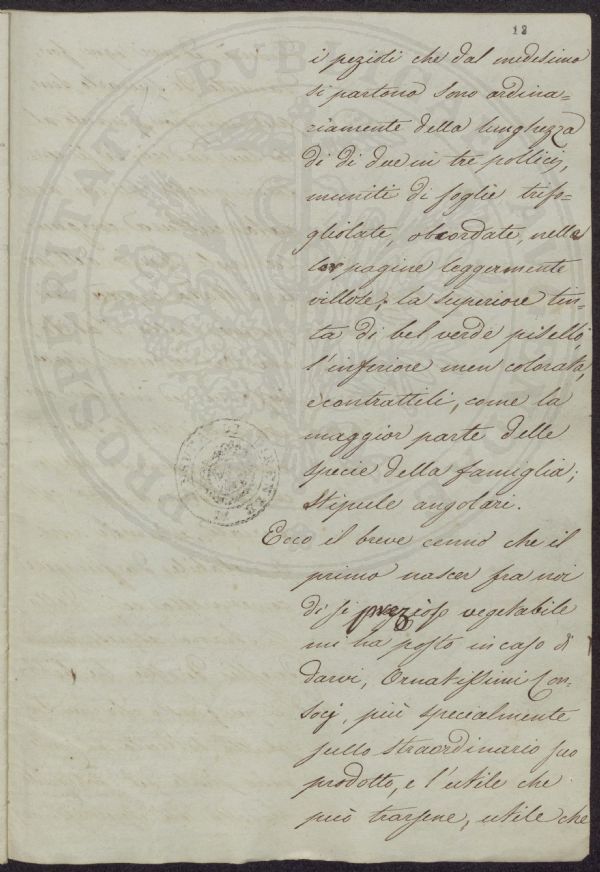 18
i pezioli che dal medesimo
si partono sono ordina-
riamente della lunghezza
di di due in tre pollici,
muniti di foglie trifo-
gliolate, obcordate, nelle
lor pagine leggermente
villose; la superiore tin-
ta di bel verde pisello,
l'inferiore men colorata,
e contrattili, come la
maggior parte delle
specie della famiglia;
stipule angolari.
Ecco il breve cenno che il
primo nascer fra noi
di sì prezioso vegetabile
mi ha posto in caso di
darvi, Ornatissimi Con-
socj, più specialmente
sullo straordinario suo
prodotto, e l'utile che
può trarsene, utile che
PROSPERITATI PUBLICAE